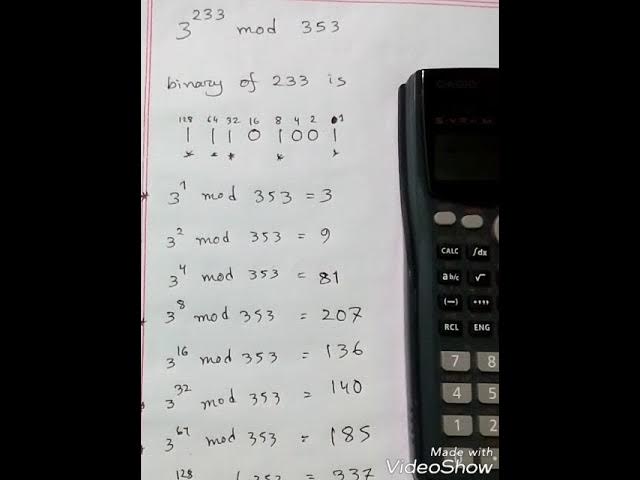 3^233 mod 353
binary of 233 is
128 64 32 16 8 4 2 1
1 1 1 0 1 0 0 1
* * * * *
* 3^1 mod 353 = 3
3^2 mod 353 = 9
3^4 mod 353 = 81
3^8 mod 353 = 207
3^16 mod 353 = 136
3^32 mod 353 = 140
3^64 mod 353 = 185
128 = 337
CASIO
CALC ∫dx
a b/c √
(−) °'"
RCL ENG
7 8
4 5
1 2
Made with
VideoShow